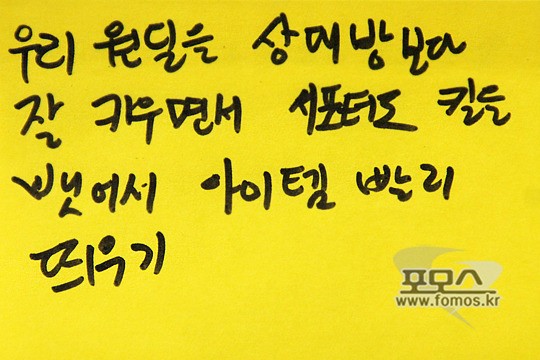 우리 원딜을 상대방보다
잘 키우면서 서포터도 킬을
뺏어서 아이템 빨리
띄우기
포모스
www.fomos.kr